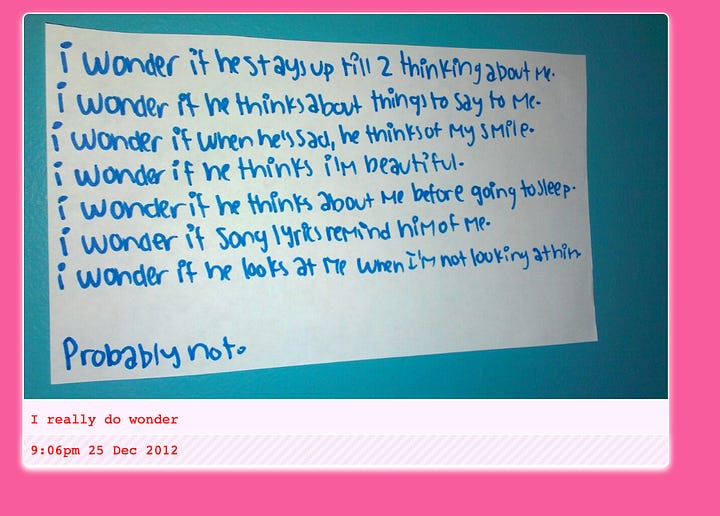 i wonder if he stays up till 2 thinking about me.
i wonder if he thinks about things to say to me.
i wonder if when he's sad, he thinks of my smile.
i wonder if he thinks i'm beautiful.
i wonder if he thinks about me before going to sleep.
i wonder if song lyrics remind him of me.
i wonder if he looks at me when I'm not looking at him.
Probably not.
I really do wonder
9:06pm 25 Dec 2012